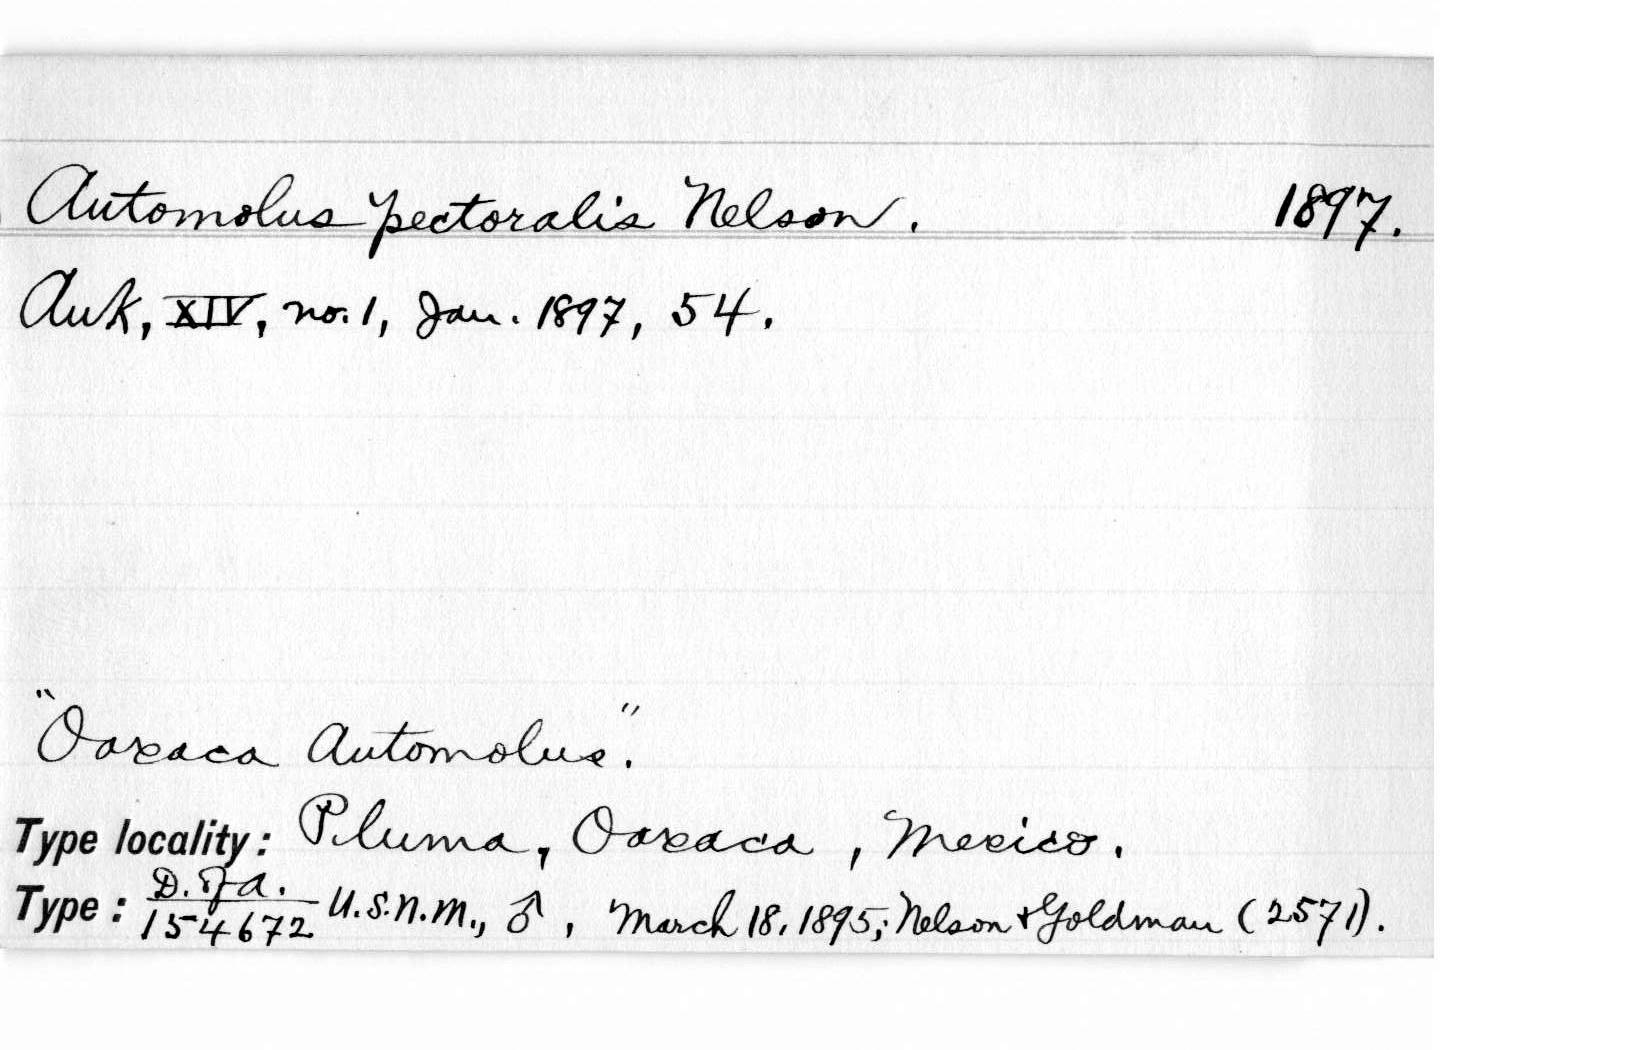 Automolus pectoralis Nelson. 1897.
Auk, XIV, no. 1, Jan. 1897, 54.
"Oaxaca Automolus".
Type locality: Pluma, Oaxaca, Mexico.
Type: D. of A. / 154672 U.S.N.M., ♂, March 18, 1895; Nelson & Goldman (2571).